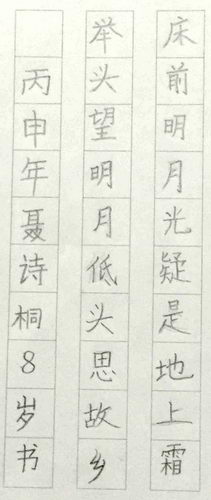 床前明月光疑是地上霜
举头望明月低头思故乡
丙申年聂诗桐8岁书